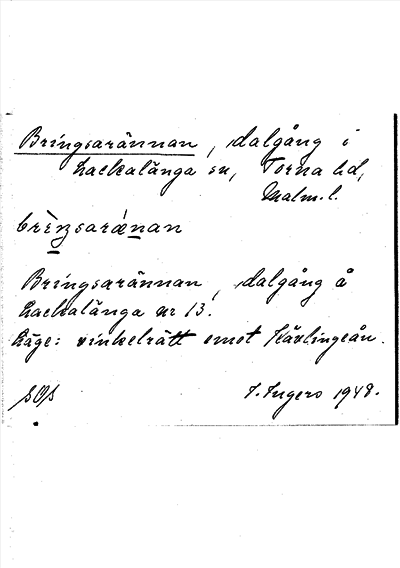 Bringsarännan, dalgång i
Lackalänga sn, Torna hd,
Malm. l.
brèŋsarǽnan
Bringsarännan, dalgång å
Lackalänga nr 13.
Läge: vinkelrätt emot Kävlingeån.
SOS J. Ingers 1948.